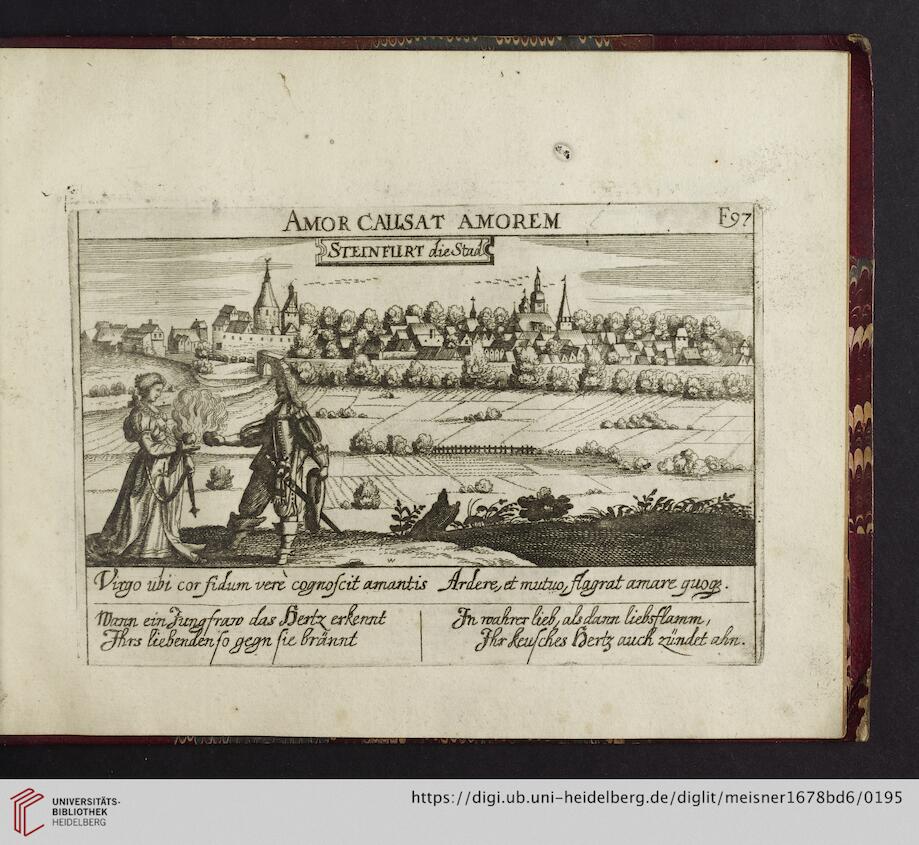 AMOR CAUSAT AMOREM
F97
STEINFURT die Stad
Virgo ubi cor fidum verè cognoſcit amantis Ardere, et mutuo, flagrat amare quoqꝫ.
Wann ein Jungfraw das Hertz erkennt
Ihrs liebenden ſo gegn ſie brännt
In wahrer lieb, als dann liebsflamm,
Ihr keuſches Hertz auch zündet ahn.
W
UNIVERSITÄTS-
BIBLIOTHEK
HEIDELBERG
https://digi.ub.uni-heidelberg.de/diglit/meisner1678bd6/0195